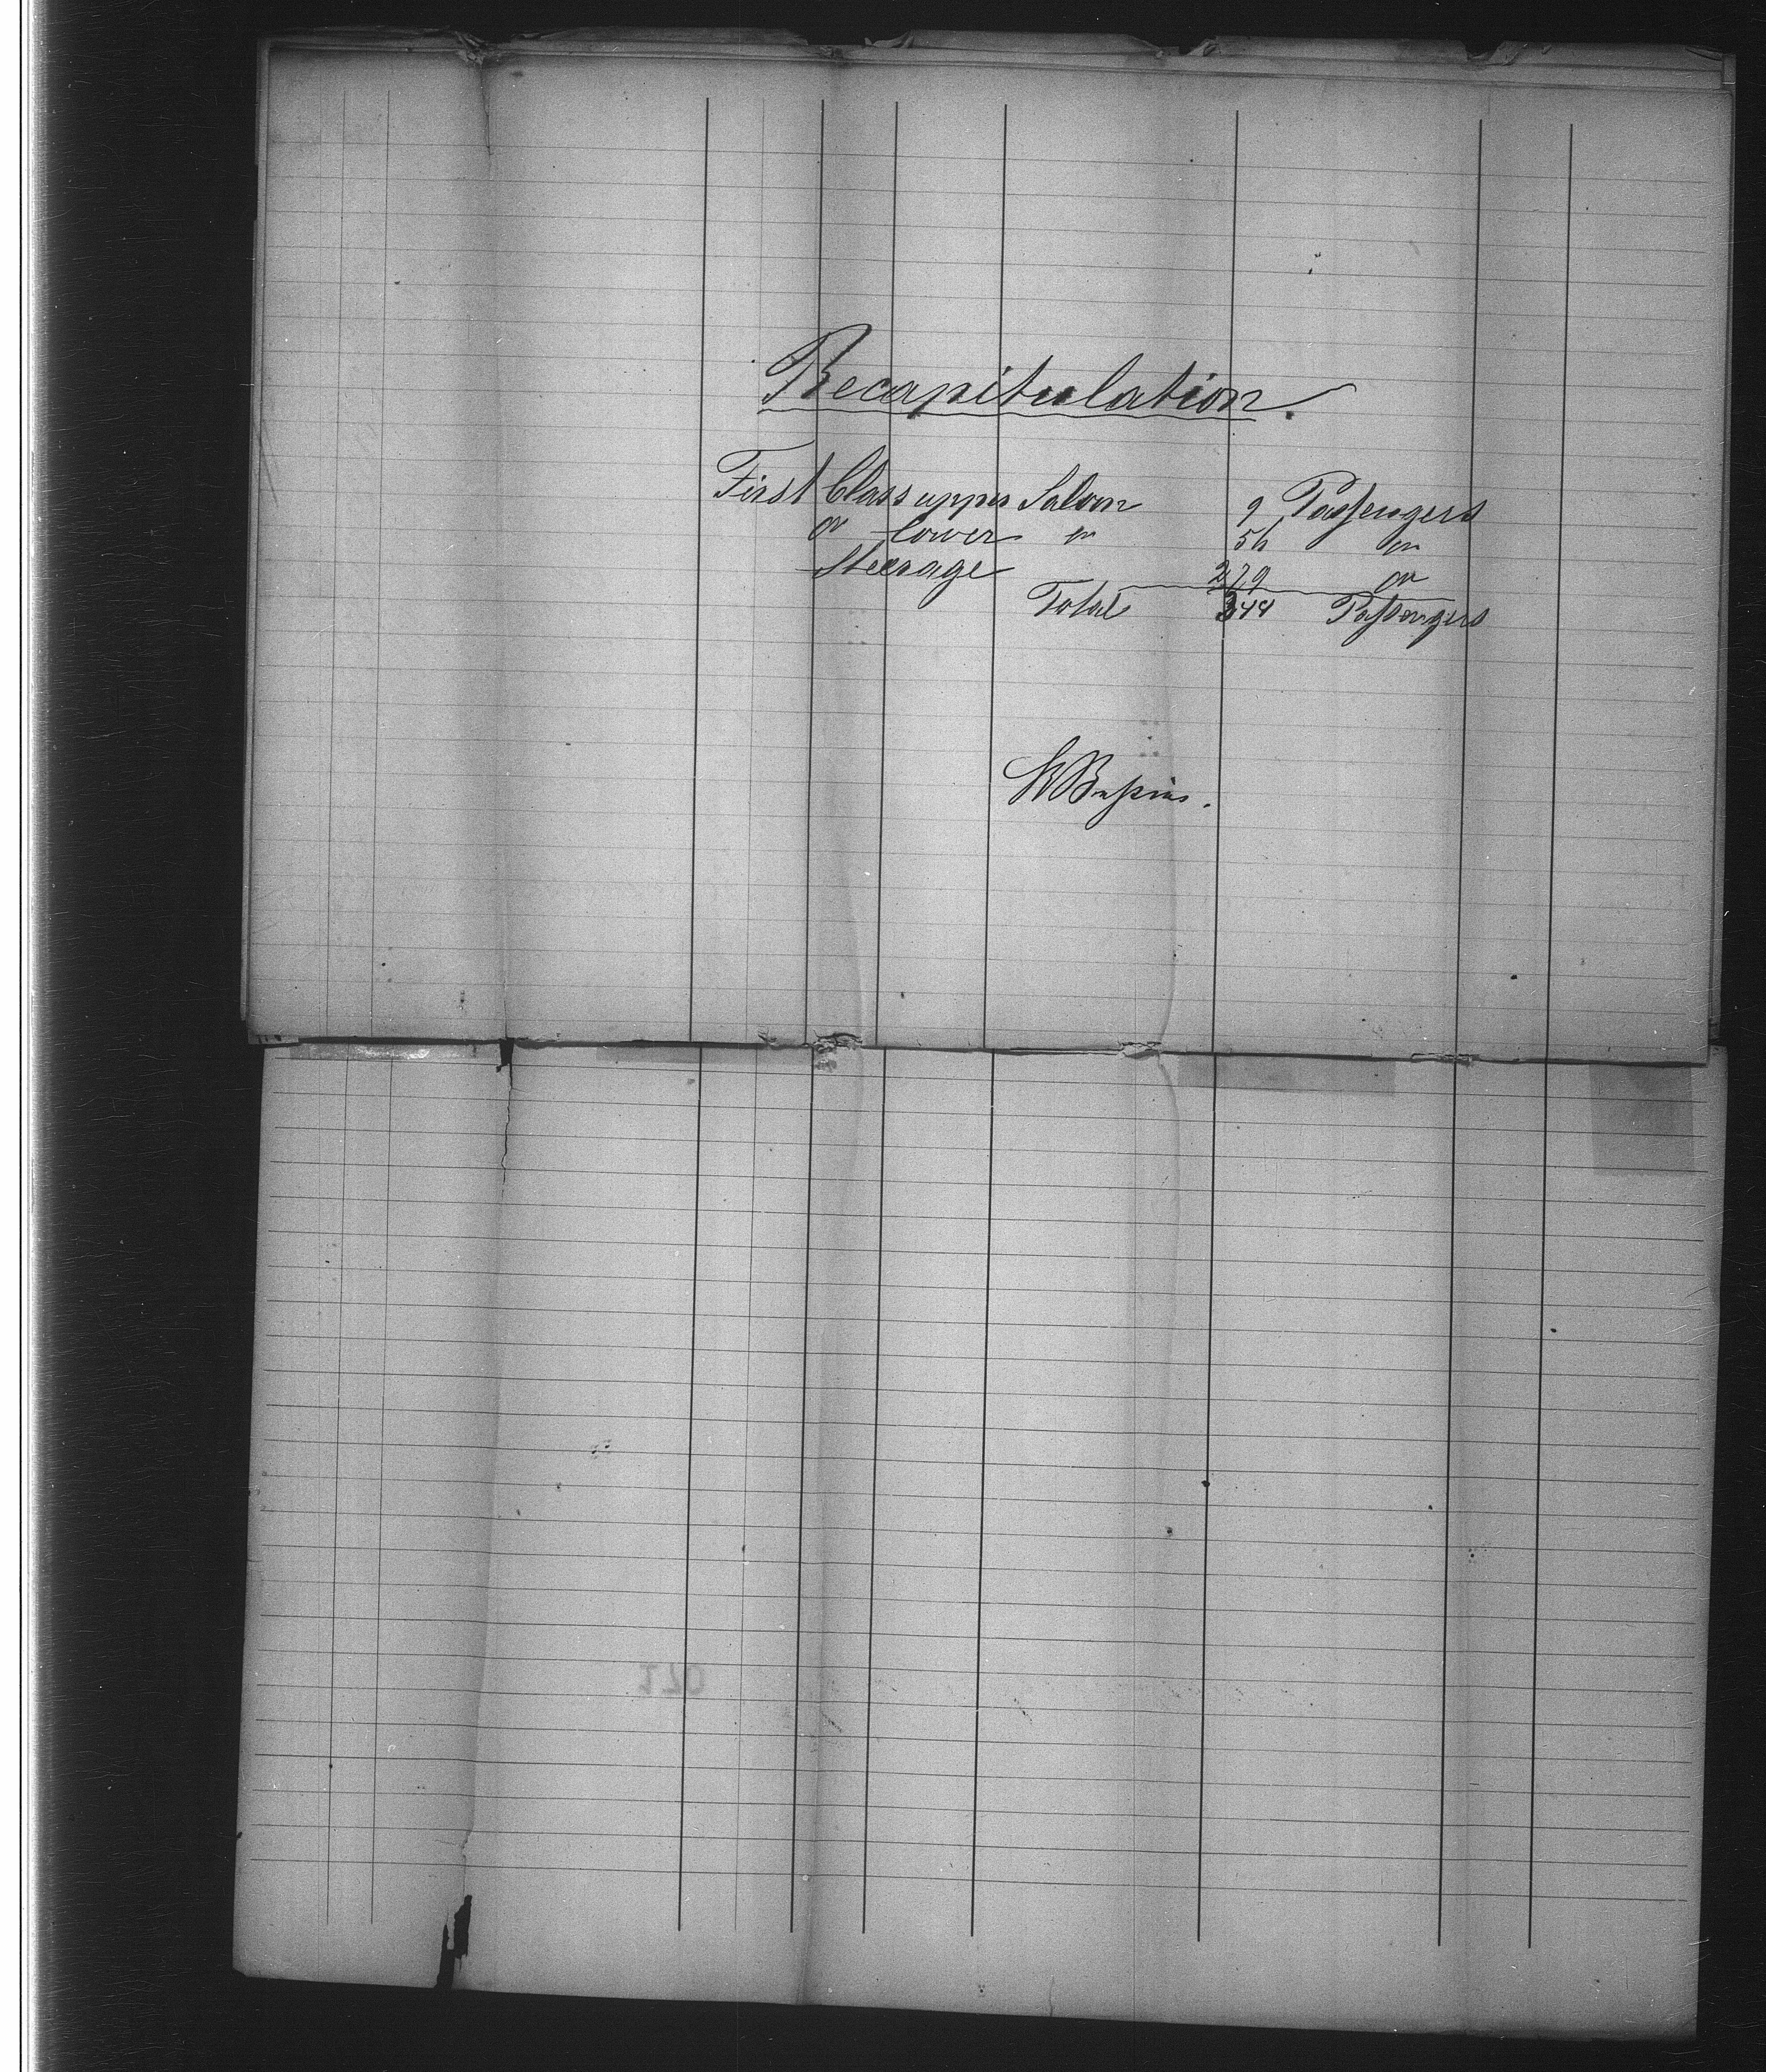 Recapitulation.
First Class upper Saloon 9 Passengers
" lower " 56 "
Steerage 279 "
Total 344 Passengers
Bussius.